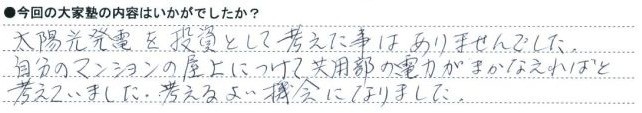 ●今回の大家塾の内容はいかがでしたか？
太陽光発電を投資として考えた事はありませんでした。
自分のマンションの屋上につけて共用部の電力がまかなえればと
考えていました。考えるよい機会になりました。